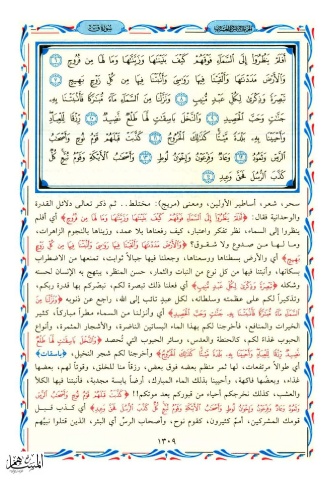 سورة ق
أَفَلَمْ يَنظُرُوٓا۟ إِلَى ٱلسَّمَآءِ فَوْقَهُمْ كَيْفَ بَنَيْنَٰهَا وَزَيَّنَّٰهَا وَمَا لَهَا مِن فُرُوجٍ ٦
وَٱلْأَرْضَ مَدَدْنَٰهَا وَأَلْقَيْنَا فِيهَا رَوَٰسِىَ وَأَنۢبَتْنَا فِيهَا مِن كُلِّ زَوْجٍۭ بَهِيجٍ ٧
تَبْصِرَةً وَذِكْرَىٰ لِكُلِّ عَبْدٍ مُّنِيبٍ ٨ وَنَزَّلْنَا مِنَ ٱلسَّمَآءِ مَآءً مُّبَٰرَكًا فَأَنۢبَتْنَا بِهِۦ
جَنَّٰتٍ وَحَبَّ ٱلْحَصِيدِ ٩ وَٱلنَّخْلَ بَاسِقَٰتٍ لَّهَا طَلْعٌ نَّضِيدٌ ١٠ رِّزْقًا لِّلْعِبَادِ
وَأَحْيَيْنَا بِهِۦ بَلْدَةً مَّيْتًا كَذَٰلِكَ ٱلْخُرُوجُ ١١ كَذَّبَتْ قَبْلَهُمْ قَوْمُ نُوحٍ وَأَصْحَٰبُ
ٱلرَّسِّ وَثَمُودُ ١٢ وَعَادٌ وَفِرْعَوْنُ وَإِخْوَٰنُ لُوطٍ ١٣ وَأَصْحَٰبُ ٱلْأَيْكَةِ وَقَوْمُ تُبَّعٍ كُلٌّ
كَذَّبَ ٱلرُّسُلَ فَحَقَّ وَعِيدِ ١٤
سحر، شعر، أساطير الأولين، ومعنى (مريج): مختلط.. ثم ذكر تعالى دلائل القدرة
والوحدانية فقال: ﴿أَفَلَمْ يَنظُرُوٓا۟ إِلَى ٱلسَّمَآءِ فَوْقَهُمْ كَيْفَ بَنَيْنَٰهَا وَزَيَّنَّٰهَا وَمَا لَهَا مِن فُرُوجٍ﴾ أي أفلم
ينظروا إلى السماء، نظر تفكر واعتبار، كيف رفعناها بلا عمد، وزيناها بالنجوم الزاهرات،
وما لها من صدوع ولا شقوق؟ ﴿وَٱلْأَرْضَ مَدَدْنَٰهَا وَأَلْقَيْنَا فِيهَا رَوَٰسِىَ وَأَنۢبَتْنَا فِيهَا مِن كُلِّ زَوْجٍۭ
بَهِيجٍ﴾ أي والأرض بسطناها ووسعناها، وجعلنا فيها جبالاً ثوابت، تمنعها من الاضطراب
بسكانها، وأنبتنا فيها من كل نوع من النبات والثمار، حسن المنظر، يبتهج به الإنسان لحسنه
وشكله ﴿تَبْصِرَةً وَذِكْرَىٰ لِكُلِّ عَبْدٍ مُّنِيبٍ﴾ أي فعلنا ذلك تبصرة لكم، نبصركم بها قدرة ربكم،
وتذكيراً لكم على عظمته وسلطانه، لكل عبدٍ تائب إلى الله، راجع عن ذنوبه ﴿وَنَزَّلْنَا مِنَ
ٱلسَّمَآءِ مَآءً مُّبَٰرَكًا فَأَنۢبَتْنَا بِهِۦ جَنَّٰتٍ وَحَبَّ ٱلْحَصِيدِ﴾ أي وأنزلنا من السماء مطراً مباركاً، كثير
الخيرات والمنافع، فأخرجنا لكم بهذا الماء البساتين الناضرة، والأشجار المثمرة، وأنواع
الحبوب غذاءً لكم، كالحنطة والعدس، وسائر الحبوب التي تُحصد ﴿وَٱلنَّخْلَ بَاسِقَٰتٍ لَّهَا طَلْعٌ
نَّضِيدٌ رِّزْقًا لِّلْعِبَادِ وَأَحْيَيْنَا بِهِۦ بَلْدَةً مَّيْتًا كَذَٰلِكَ ٱلْخُرُوجُ﴾ وأخرجنا لكم شجر النخيل، ﴿باسقات﴾
أي طوالاً مرتفعات، لها ثمر منظم بعضه فوق بعض، رزقاً منا للخلق، وقوتاً لهم، بعضها
غذاء، وبعضها فاكهة، وأحيينا بذلك الماء المبارك، أرضاً يابسة مجدبة، فأنبتنا فيها الكلأ
والعشب، كذلك نخرجكم أحياء من قبوركم بعد موتكم!! ﴿كَذَّبَتْ قَبْلَهُمْ قَوْمُ نُوحٍ وَأَصْحَٰبُ ٱلرَّسِّ
وَثَمُودُ وَعَادٌ وَفِرْعَوْنُ وَإِخْوَٰنُ لُوطٍ وَأَصْحَٰبُ ٱلْأَيْكَةِ وَقَوْمُ تُبَّعٍ كُلٌّ كَذَّبَ ٱلرُّسُلَ فَحَقَّ وَعِيدِ﴾ أي كذب قبل
قومك المشركين، أمم كثيرون، كقوم نوح، وأصحاب الرسّ أي البئر، الذين قتلوا نبيّهم
١٣٠٩